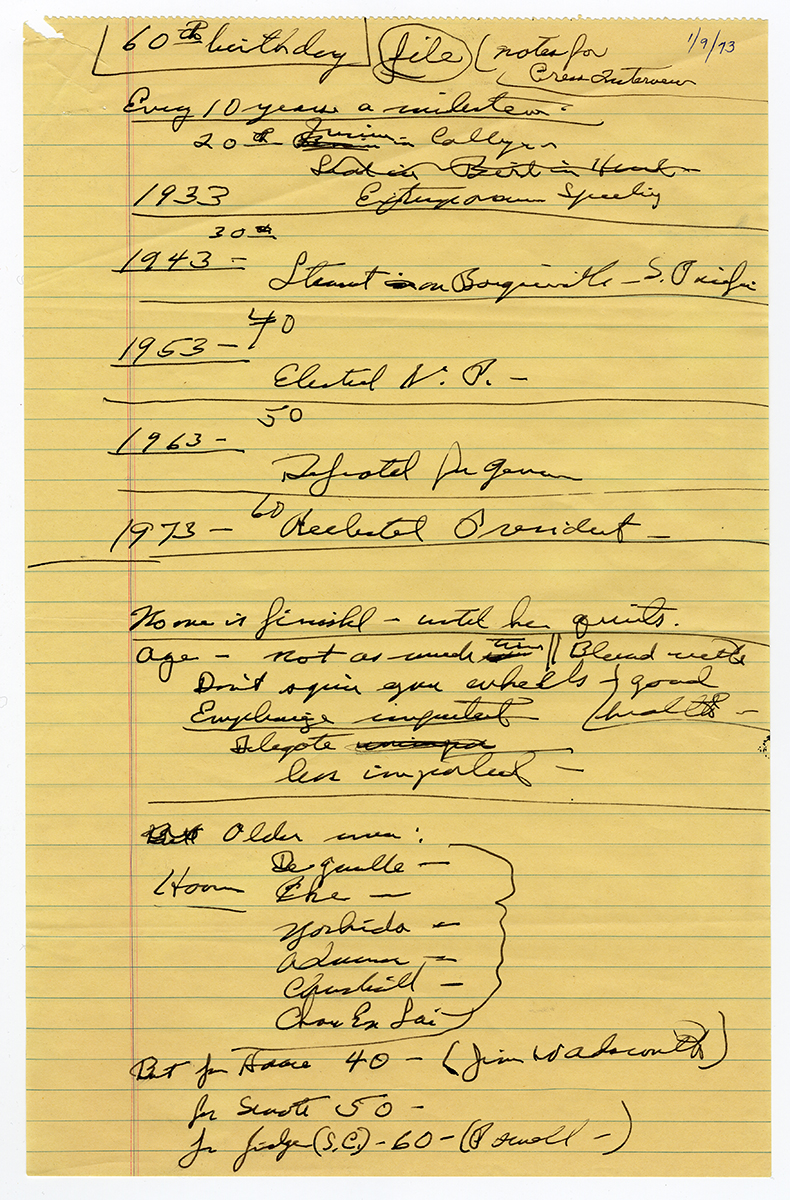 60th birthday file (notes for 1/9/73
Press Interview
Every 10 years a milestone:
20th Junior in College
Extemporaneous Speaking
1933
30th
1943 - Stewart on Bougainville - S. Pacific
40
1953 -
Elected V. P. -
50
1963 -
Defeated for Governor
1973 - 60 Reelected President -
No one is finished - until he quits.
Age - not as much time || Blend with
Don't spin your wheels } good
Emphasize important (health -
Delegate
less important -
Older men:
De Gaulle -
Hoover Ike -
Yoshida -
Adenauer -
Churchill -
Chou En Lai -
But for House 40 - (Jim Wadsworth)
for Senate 50 -
for Judge (S.C.) - 60 - (Powell -)